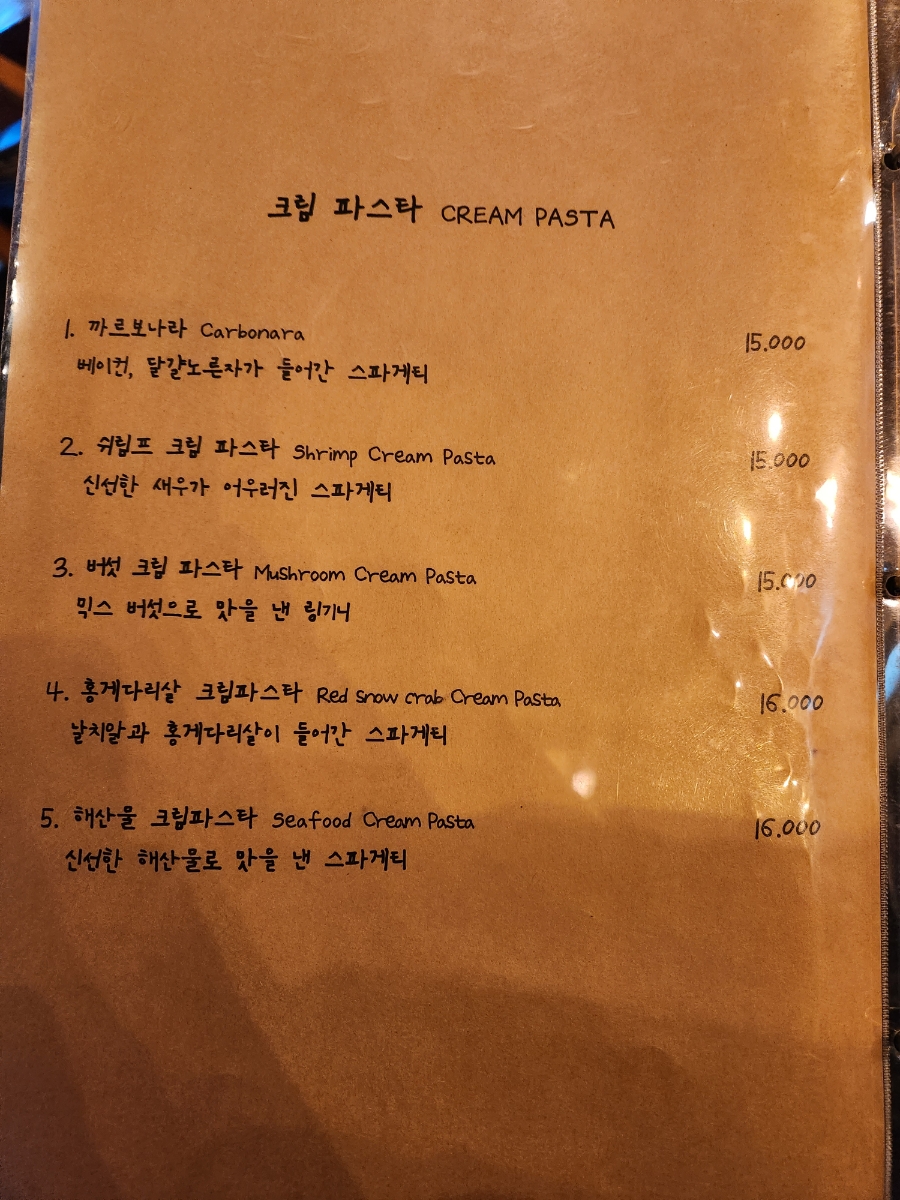 크림 파스타 CREAM PASTA
1. 까르보나라 Carbonara 15.000
베이컨, 달걀노른자가 들어간 스파게티
2. 쉬림프 크림 파스타 Shrimp Cream Pasta 15.000
신선한 새우가 어우러진 스파게티
3. 버섯 크림 파스타 Mushroom Cream Pasta 15.000
믹스 버섯으로 맛을 낸 링기니
4. 홍게다리살 크림파스타 Red snow crab Cream Pasta 16.000
날치알과 홍게다리살이 들어간 스파게티
5. 해산물 크림파스타 Seafood Cream Pasta 16.000
신선한 해산물로 맛을 낸 스파게티